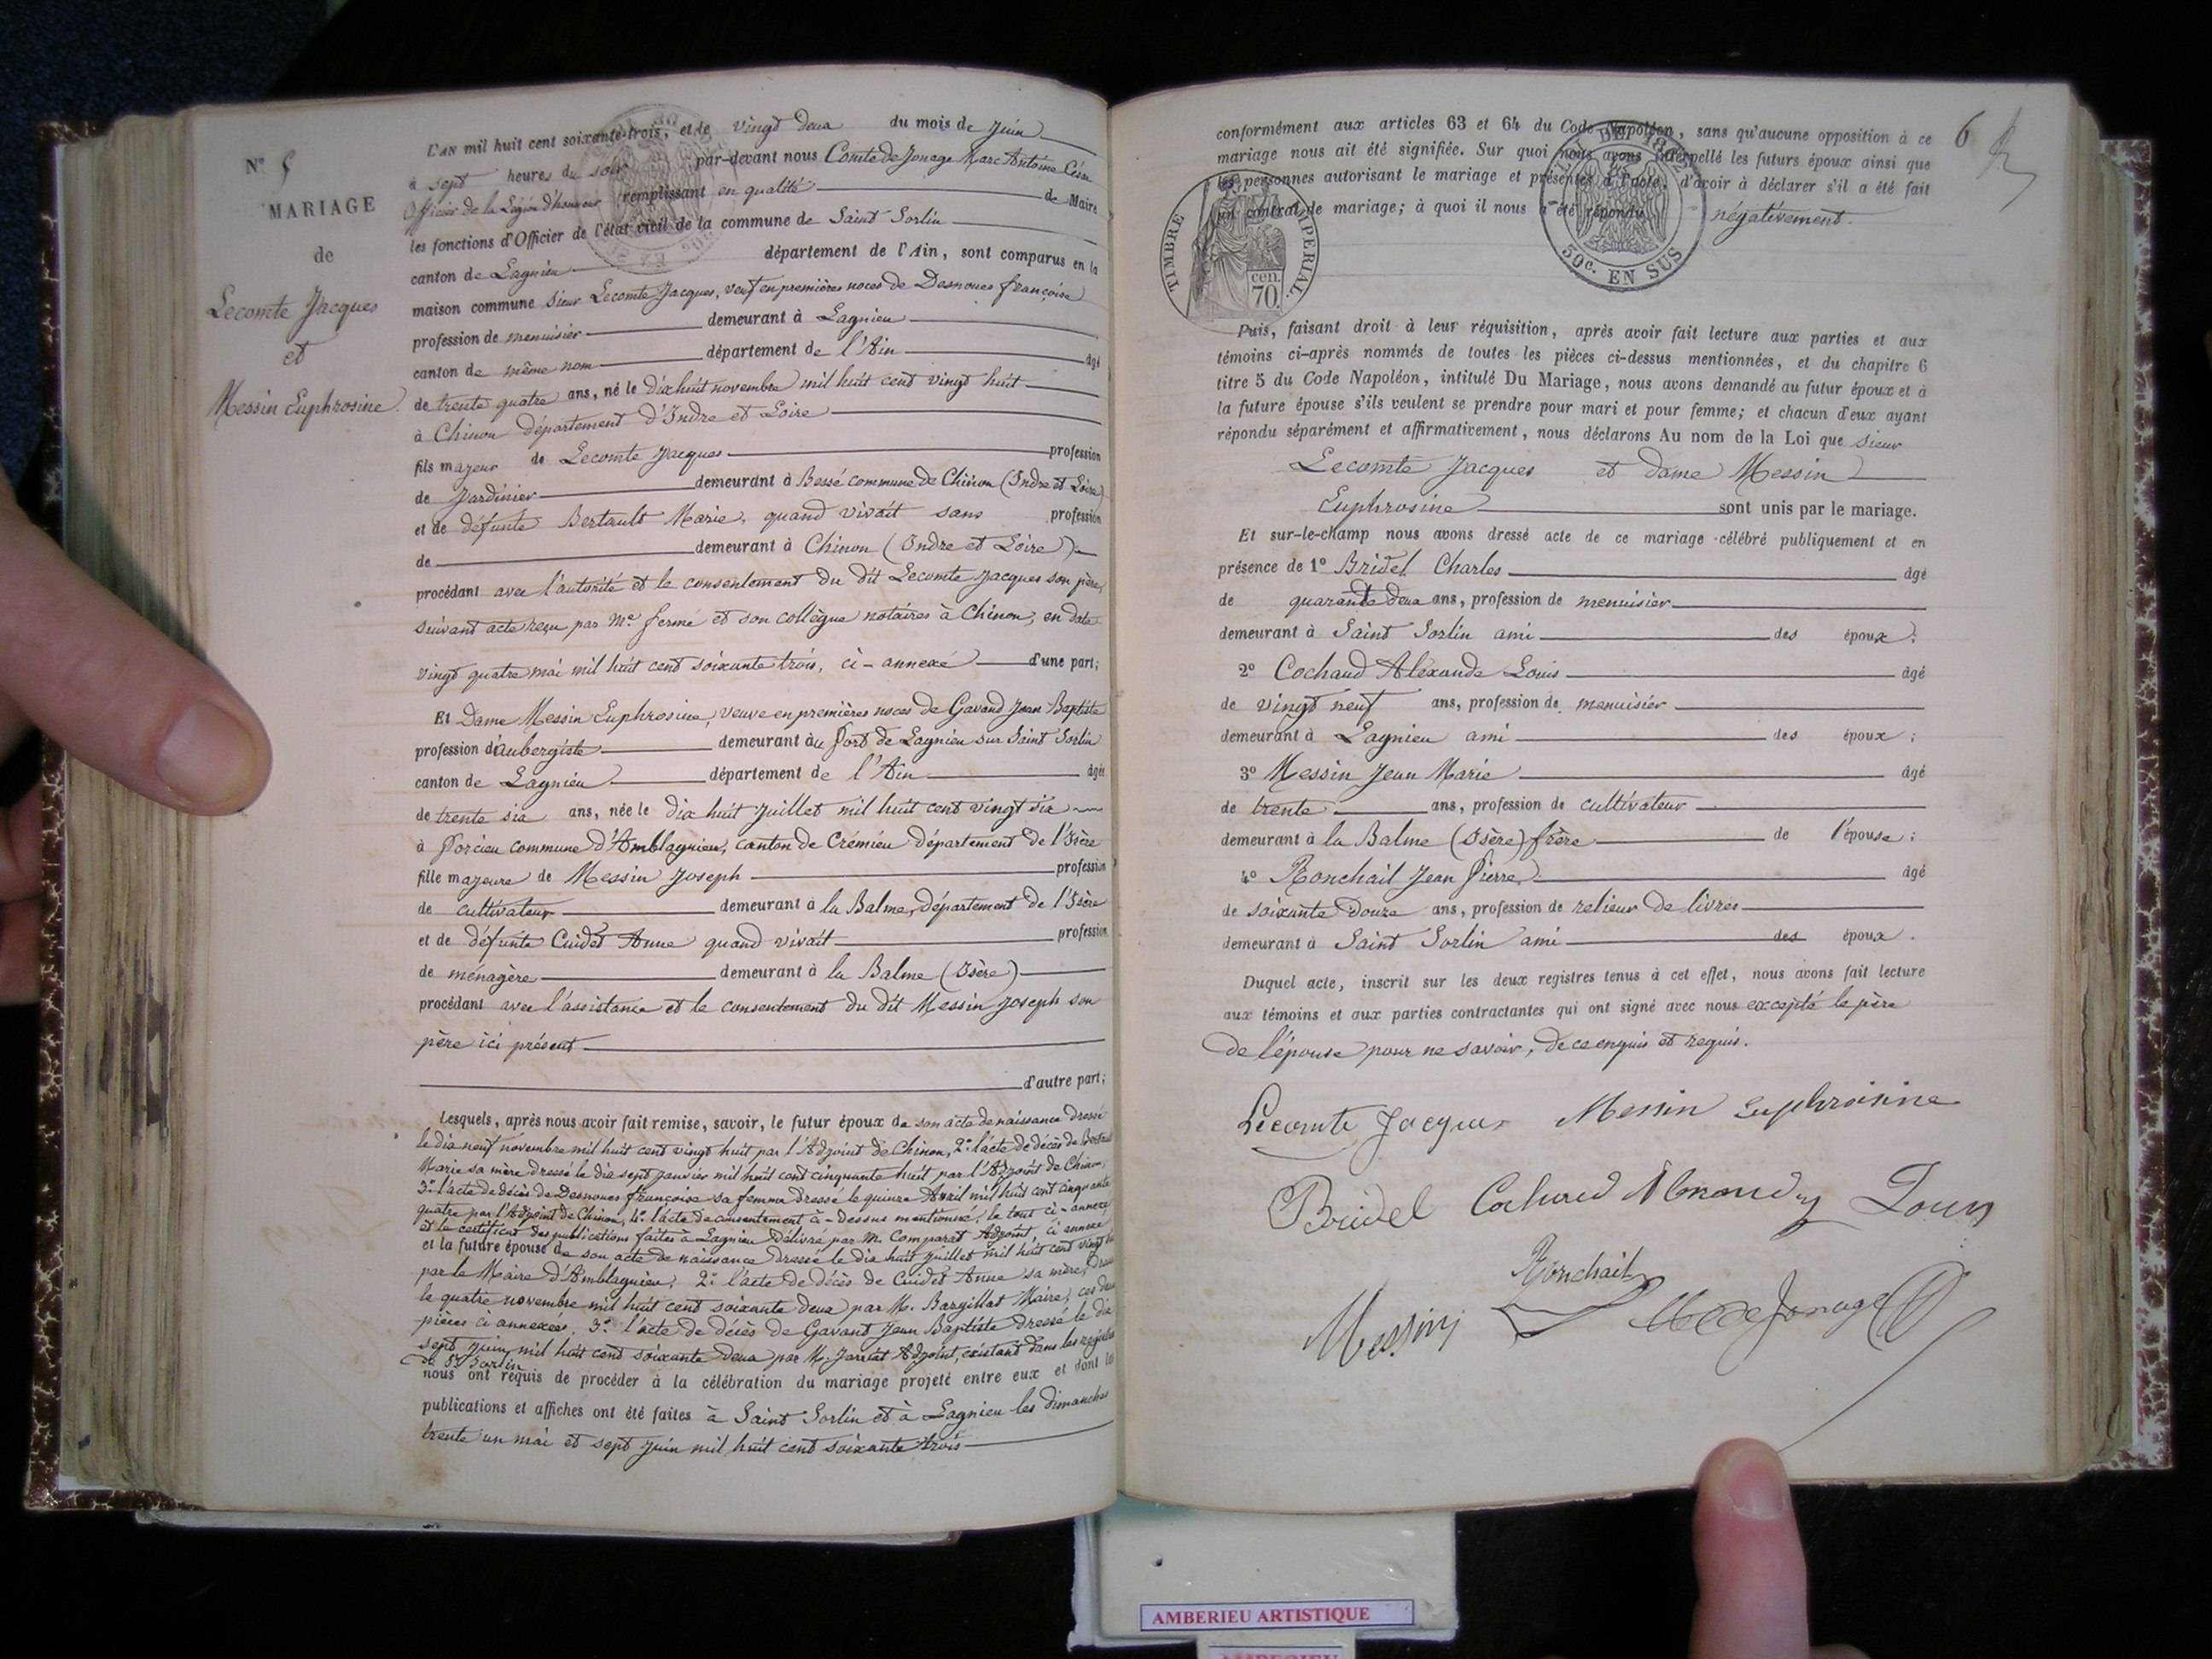 N° 5
MARIAGE
de
Lecomte Jacques
et
Messin Euphrosine.
L'AN mil huit cent soixante-trois, et le vingt deux du mois de Juin
à sept heures du soir par-devant nous Comte de Jonage Marc Antoine César
Officier de la Légion d'honneur remplissant en qualité de Maire
les fonctions d'Officier de l'état civil de la commune de Saint Sorlin
canton de Lagnieu département de l'Ain, sont comparus en la
maison commune Sieur Lecomte Jacques, veuf en premières noces de Desnoues françoise
profession de menuisier demeurant à Lagnieu
canton de même nom département de l'Ain âgé
de trente quatre ans, né le dix huit novembre mil huit cent vingt huit
à Chinon département d'Indre et Loire
fils majeur de Lecomte Jacques profession
de Jardinier demeurant à Bessé commune de Chinon (Indre et Loire)
et de défunte Bertault Marie, quand vivait sans profession
de demeurant à Chinon (Indre et Loire)
procédant avec l'autorité et le consentement du dit Lecomte Jacques son père,
suivant acte reçu par Me fermé et son collègue notaires à Chinon, en date
vingt quatre mai mil huit cent soixante trois, ci-annexé d'une part;
Et Dame Messin Euphrosine, veuve en premières noces de Gavand Jean Baptiste
profession d'aubergiste demeurant au Port de Lagnieu sur Saint Sorlin
canton de Lagnieu département de l'Ain âgée
de trente six ans, née le dix huit Juillet mil huit cent vingt six
à Porcieu commune d'Amblagnieu, canton de Crémieu département de l'Isère
fille majeure de Messin Joseph profession
de cultivateur demeurant à la Balme, département de l'Isère
et de défunte Cuidet Anne quand vivait profession
de ménagère demeurant à la Balme (Isère)
procédant avec l'assistance et le consentement du dit Messin Joseph son
père ici présent
d'autre part;
Lesquels, après nous avoir fait remise, savoir, le futur époux de son acte de naissance dressé
le dix neuf novembre mil huit cent vingt huit par l'Adjoint de Chinon, 2° l'acte de décès de Bertault
Marie sa mère dressé le dix sept Janvier mil huit cent cinquante huit par l'Adjoint de Chinon,
3° l'acte de décès de Desnoues françoise sa femme dressé le quinze Avril mil huit cent cinquante
quatre par l'Adjoint de Chinon, 4° l'acte de consentement ci-dessus mentionné; le tout ci-annexé
et le certificat des publications faites à Lagnieu délivré par M. Comparat Adjoint, ci annexé
et la future épouse de son acte de naissance dressé le dix huit Juillet mil huit cent vingt six
par le Maire d'Amblagnieu; 2° l'acte de décès de Cuidet Anne sa mère, dressé
le quatre novembre mil huit cent soixante deux par M. Bargillat Maire, ces deux
pièces ci annexées. 3° l'acte de décès de Gavant Jean Baptiste dressé le dix
sept juin mil huit cent soixante deux par M. Jarriat Adjoint, existant dans les registres
de St Sorlin
nous ont requis de procéder à la célébration du mariage projeté entre eux et dont les
publications et affiches ont été faites à Saint Sorlin et à Lagnieu les dimanches
trente un mai et sept Juin mil huit cent soixante trois
6
conformément aux articles 63 et 64 du Code Napoléon, sans qu'aucune opposition à ce
mariage nous ait été signifiée. Sur quoi nous avons interpellé les futurs époux ainsi que
les personnes autorisant le mariage et présentes à l'acte, d'avoir à déclarer s'il a été fait
un contrat de mariage; à quoi il nous a été répondu négativement.
TIMBRE IMPERIAL
cen.
70.
50c. EN SUS
Puis, faisant droit à leur réquisition, après avoir fait lecture aux parties et aux
témoins ci-après nommés de toutes les pièces ci-dessus mentionnées, et du chapitre 6
titre 5 du Code Napoléon, intitulé Du Mariage, nous avons demandé au futur époux et à
la future épouse s'ils veulent se prendre pour mari et pour femme; et chacun d'eux ayant
répondu séparément et affirmativement, nous déclarons Au nom de la Loi que sieur
Lecomte Jacques et dame Messin
Euphrosine sont unis par le mariage.
Et sur-le-champ nous avons dressé acte de ce mariage célébré publiquement et en
présence de 1° Bridel Charles âgé
de quarante deux ans, profession de menuisier
demeurant à Saint Sorlin ami des époux;
2° Cochand Alexande Louis âgé
de vingt neuf ans, profession de menuisier
demeurant à Lagnieu ami des époux;
3° Messin Jean Marie âgé
de trente ans, profession de cultivateur
demeurant à la Balme (Isère) frère de l'épouse;
4° Ronchail Jean Pierre âgé
de soixante douze ans, profession de relieur de livres
demeurant à Saint Sorlin ami des époux.
Duquel acte, inscrit sur les deux registres tenus à cet effet, nous avons fait lecture
aux témoins et aux parties contractantes qui ont signé avec nous excepté le père
de l'épouse pour ne savoir, de ce enquis et requis.
Lecomte Jacques Messin Euphroisine
Bridel Cochard Louis
Ronchail
Messin M de Jonage
AMBERIEU ARTISTIQUE
AMBERIEU